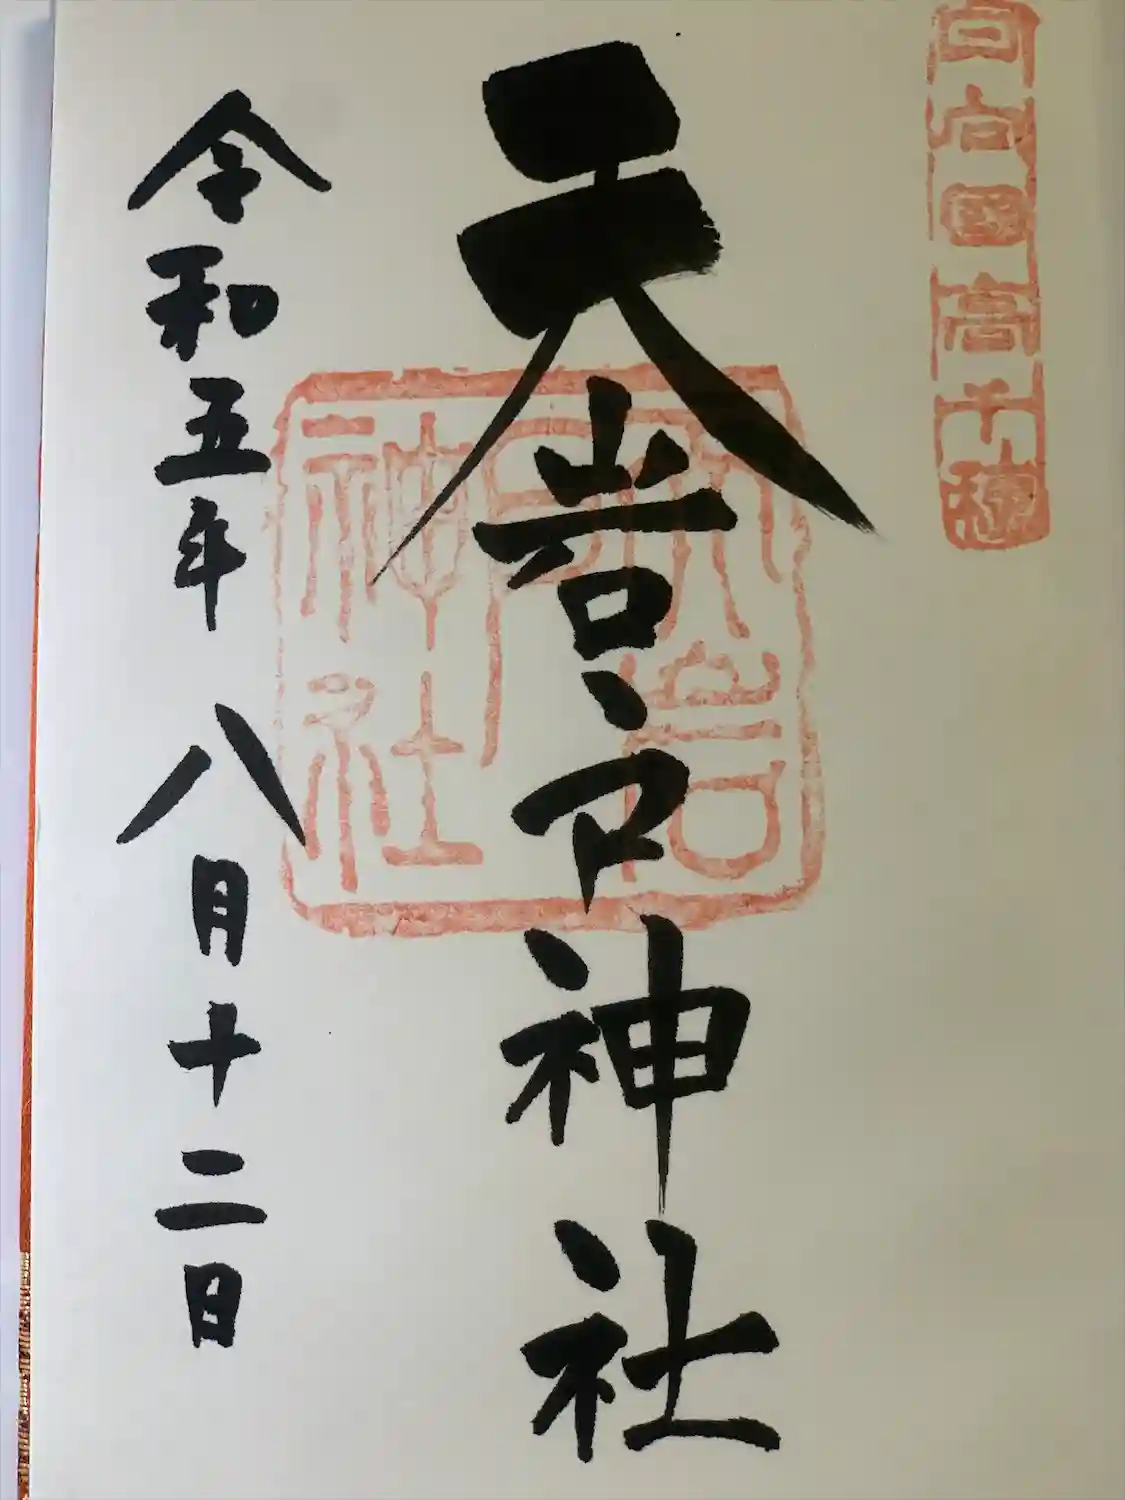 日向国高千穂
天岩戸神社
天岩戸神社
令和五年 八月十二日